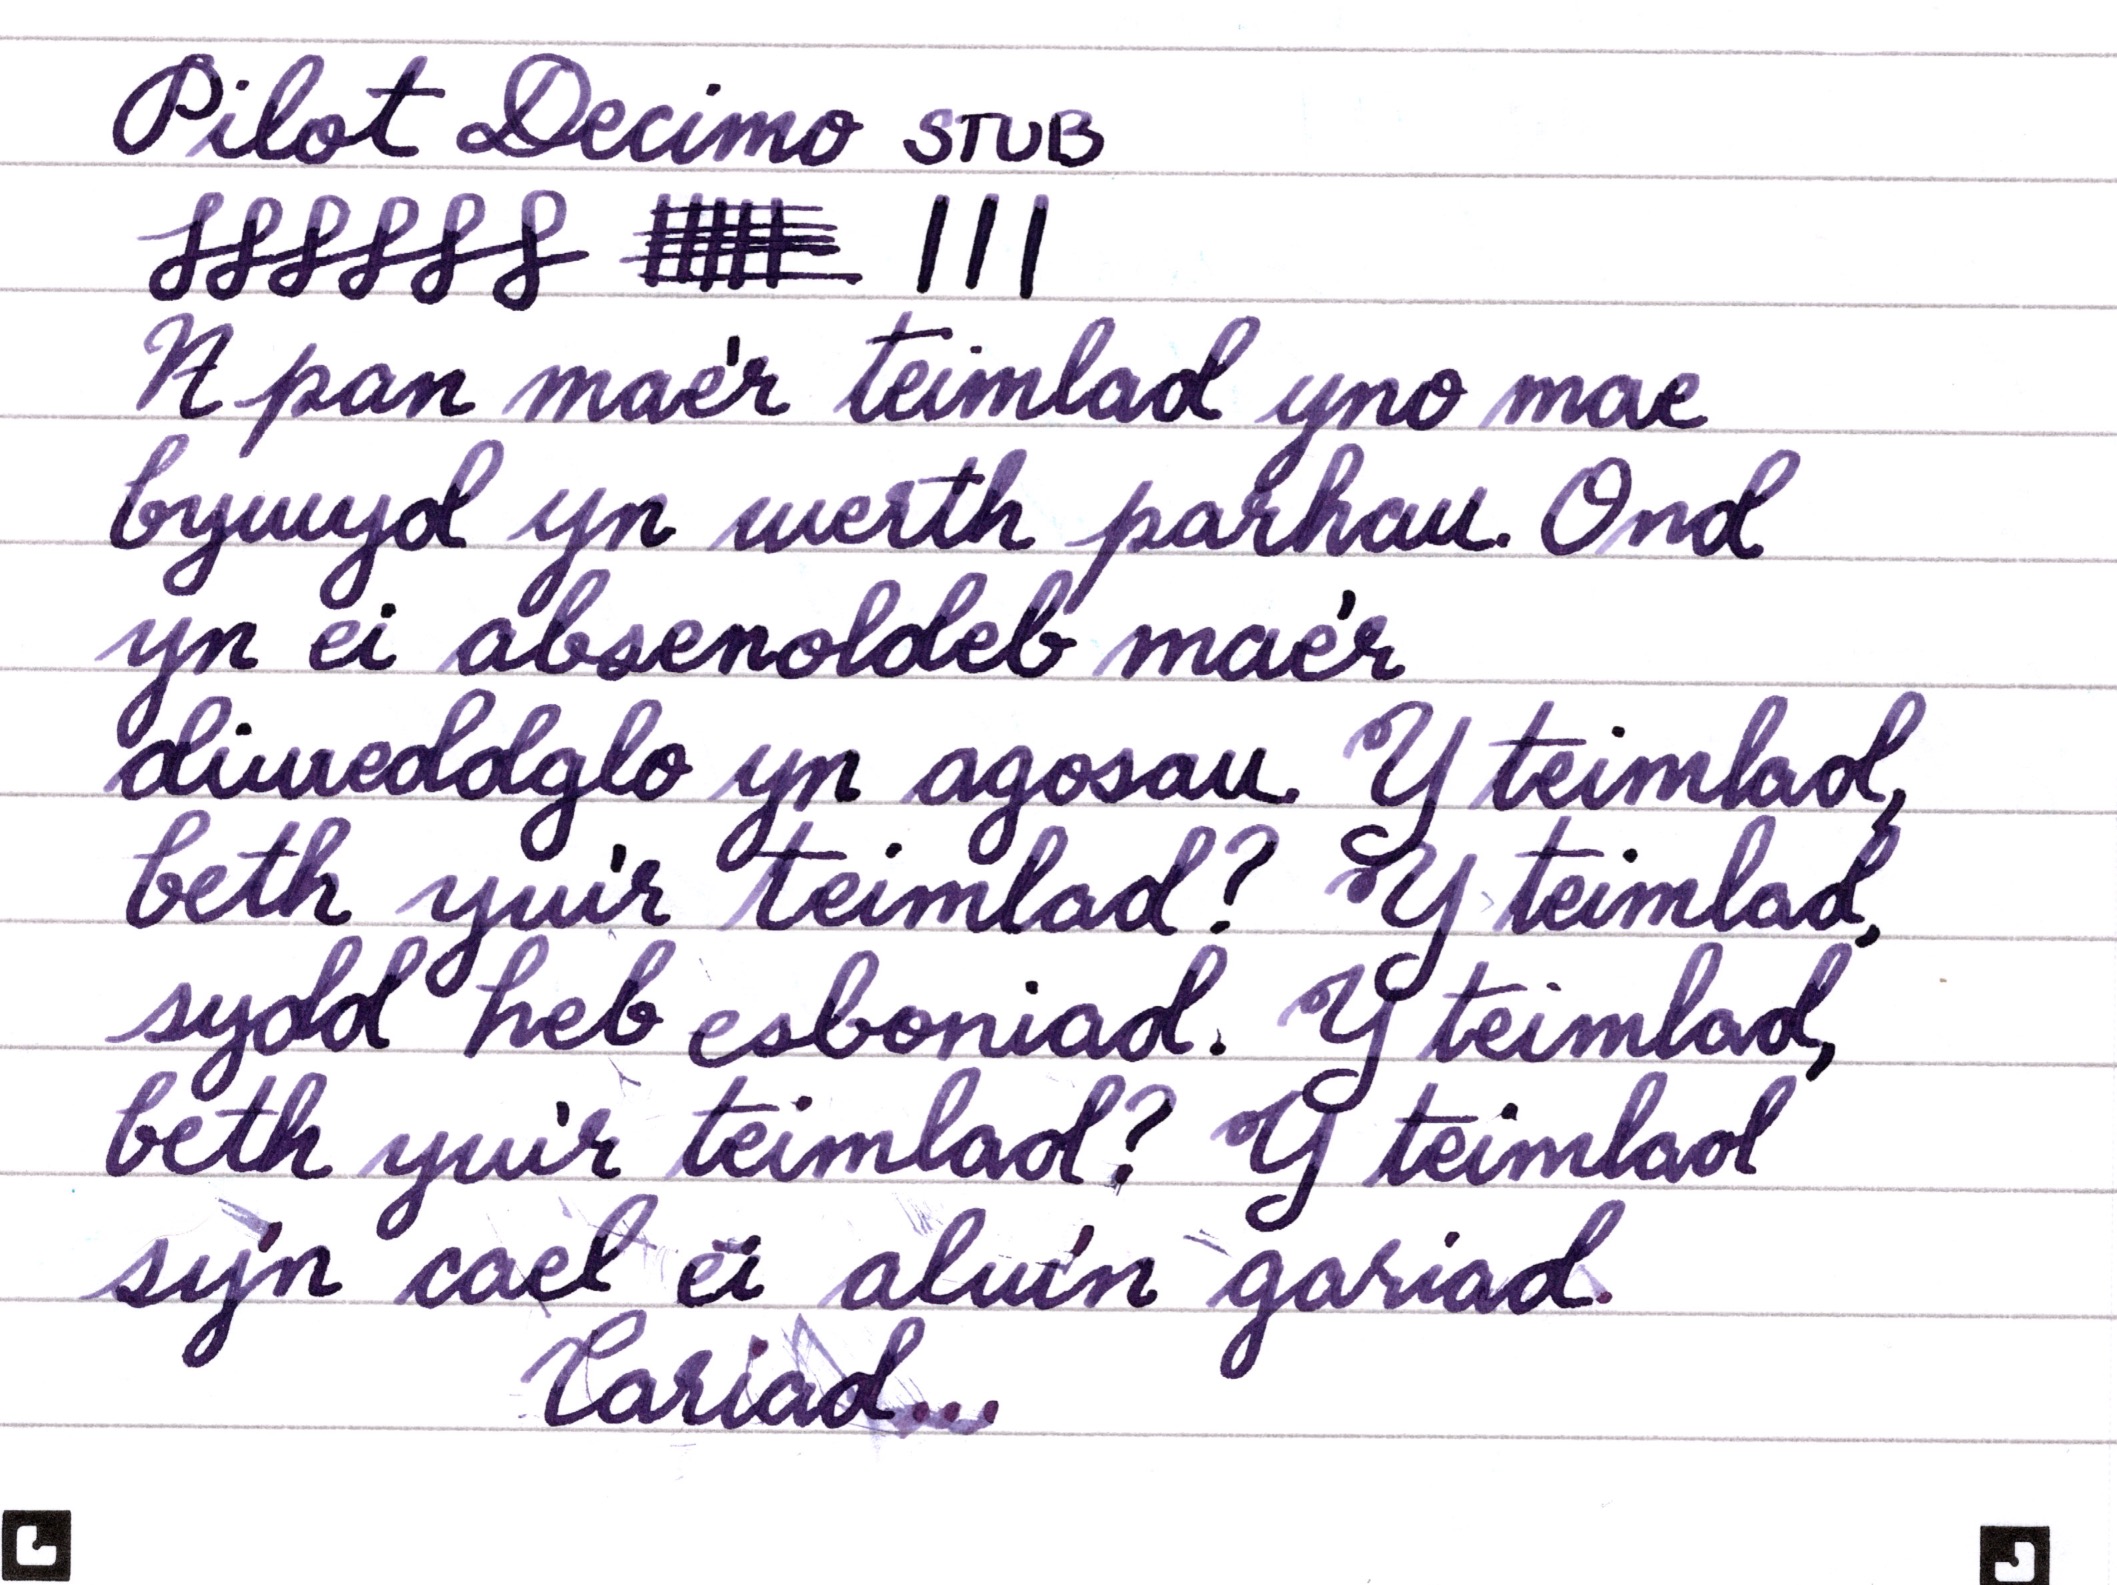 Pilot Decimo STUB
A pan mae'r teimlad yno mae
bywyd yn werth parhau. Ond
yn ei absenoldeb mae'r
diweddglo yn agosau. Y teimlad,
beth yw'r teimlad? Y teimlad,
sydd heb esboniad. Y teimlad,
beth yw'r teimlad? Y teimlad
sy'n cael ei alw'n gariad.
Cariad...